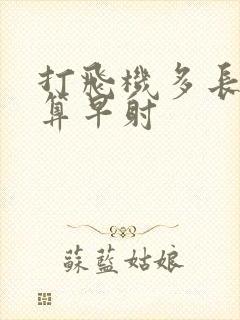 打飛機多長
算早射
蘇藍姑娘